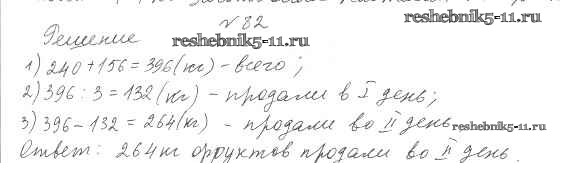 reshebnik5-11.ru
№ 82
Решение
reshebnik5-11.ru
1) 240 + 156 = 396 (кг) - всего;
2) 396 : 3 = 132 (кг) - продали в I день;
3) 396 - 132 = 264 (кг) - продали во II день
reshebnik5-11.ru
Ответ: 264 кг фруктов продали во II день.